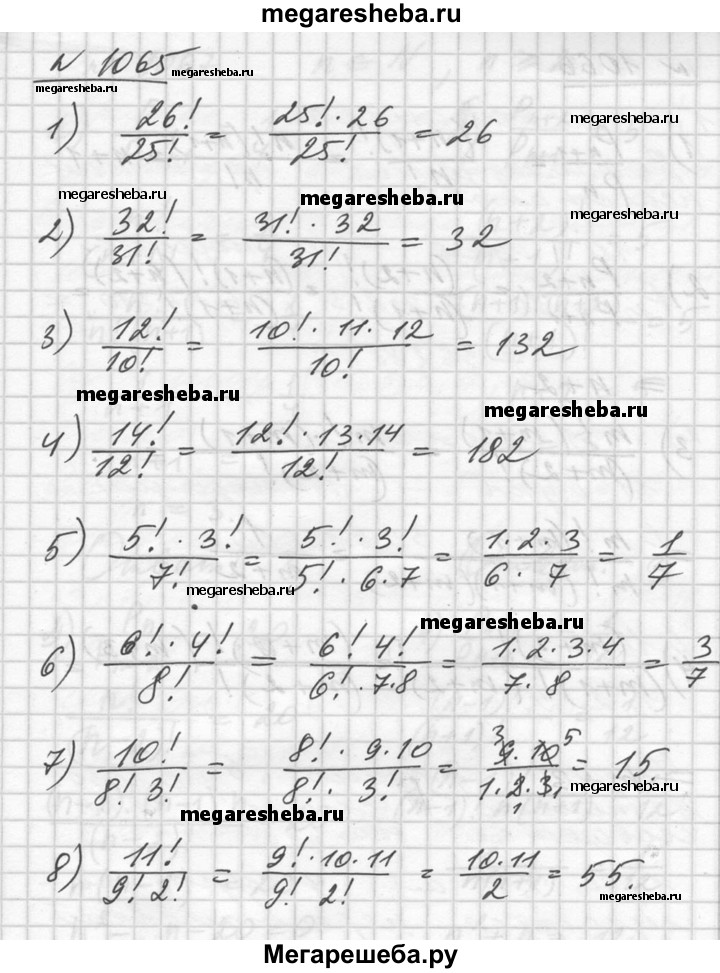 megaresheba.ru
N 1065 megaresheba.ru
megaresheba.ru
1) 26!/25! = 25! · 26/25! = 26 megaresheba.ru
megaresheba.ru megaresheba.ru megaresheba.ru
2) 32!/31! = 31! · 32/31! = 32
3) 12!/10! = 10! · 11 · 12/10! = 132
megaresheba.ru megaresheba.ru
4) 14!/12! = 12! · 13 · 14/12! = 182
5) 5! · 3!/7! = 5! · 3!/5! · 6 · 7 = 1 · 2 · 3/6 · 7 = 1/7
megaresheba.ru
megaresheba.ru
6) 6! · 4!/8! = 6! 4!/6! · 7 · 8 = 1 · 2 · 3 · 4/7 · 8 = 3/7
7) 10!/8! 3! = 8! · 9 · 10/8! · 3! = 3 9 · 10 5/1 · 2 · 3 1 1 = 15. megaresheba.ru
megaresheba.ru
8) 11!/9! 2! = 9! · 10 · 11/9! 2! = 10 · 11/2 = 55.
megaresheba.ru
Мегарешеба.ру